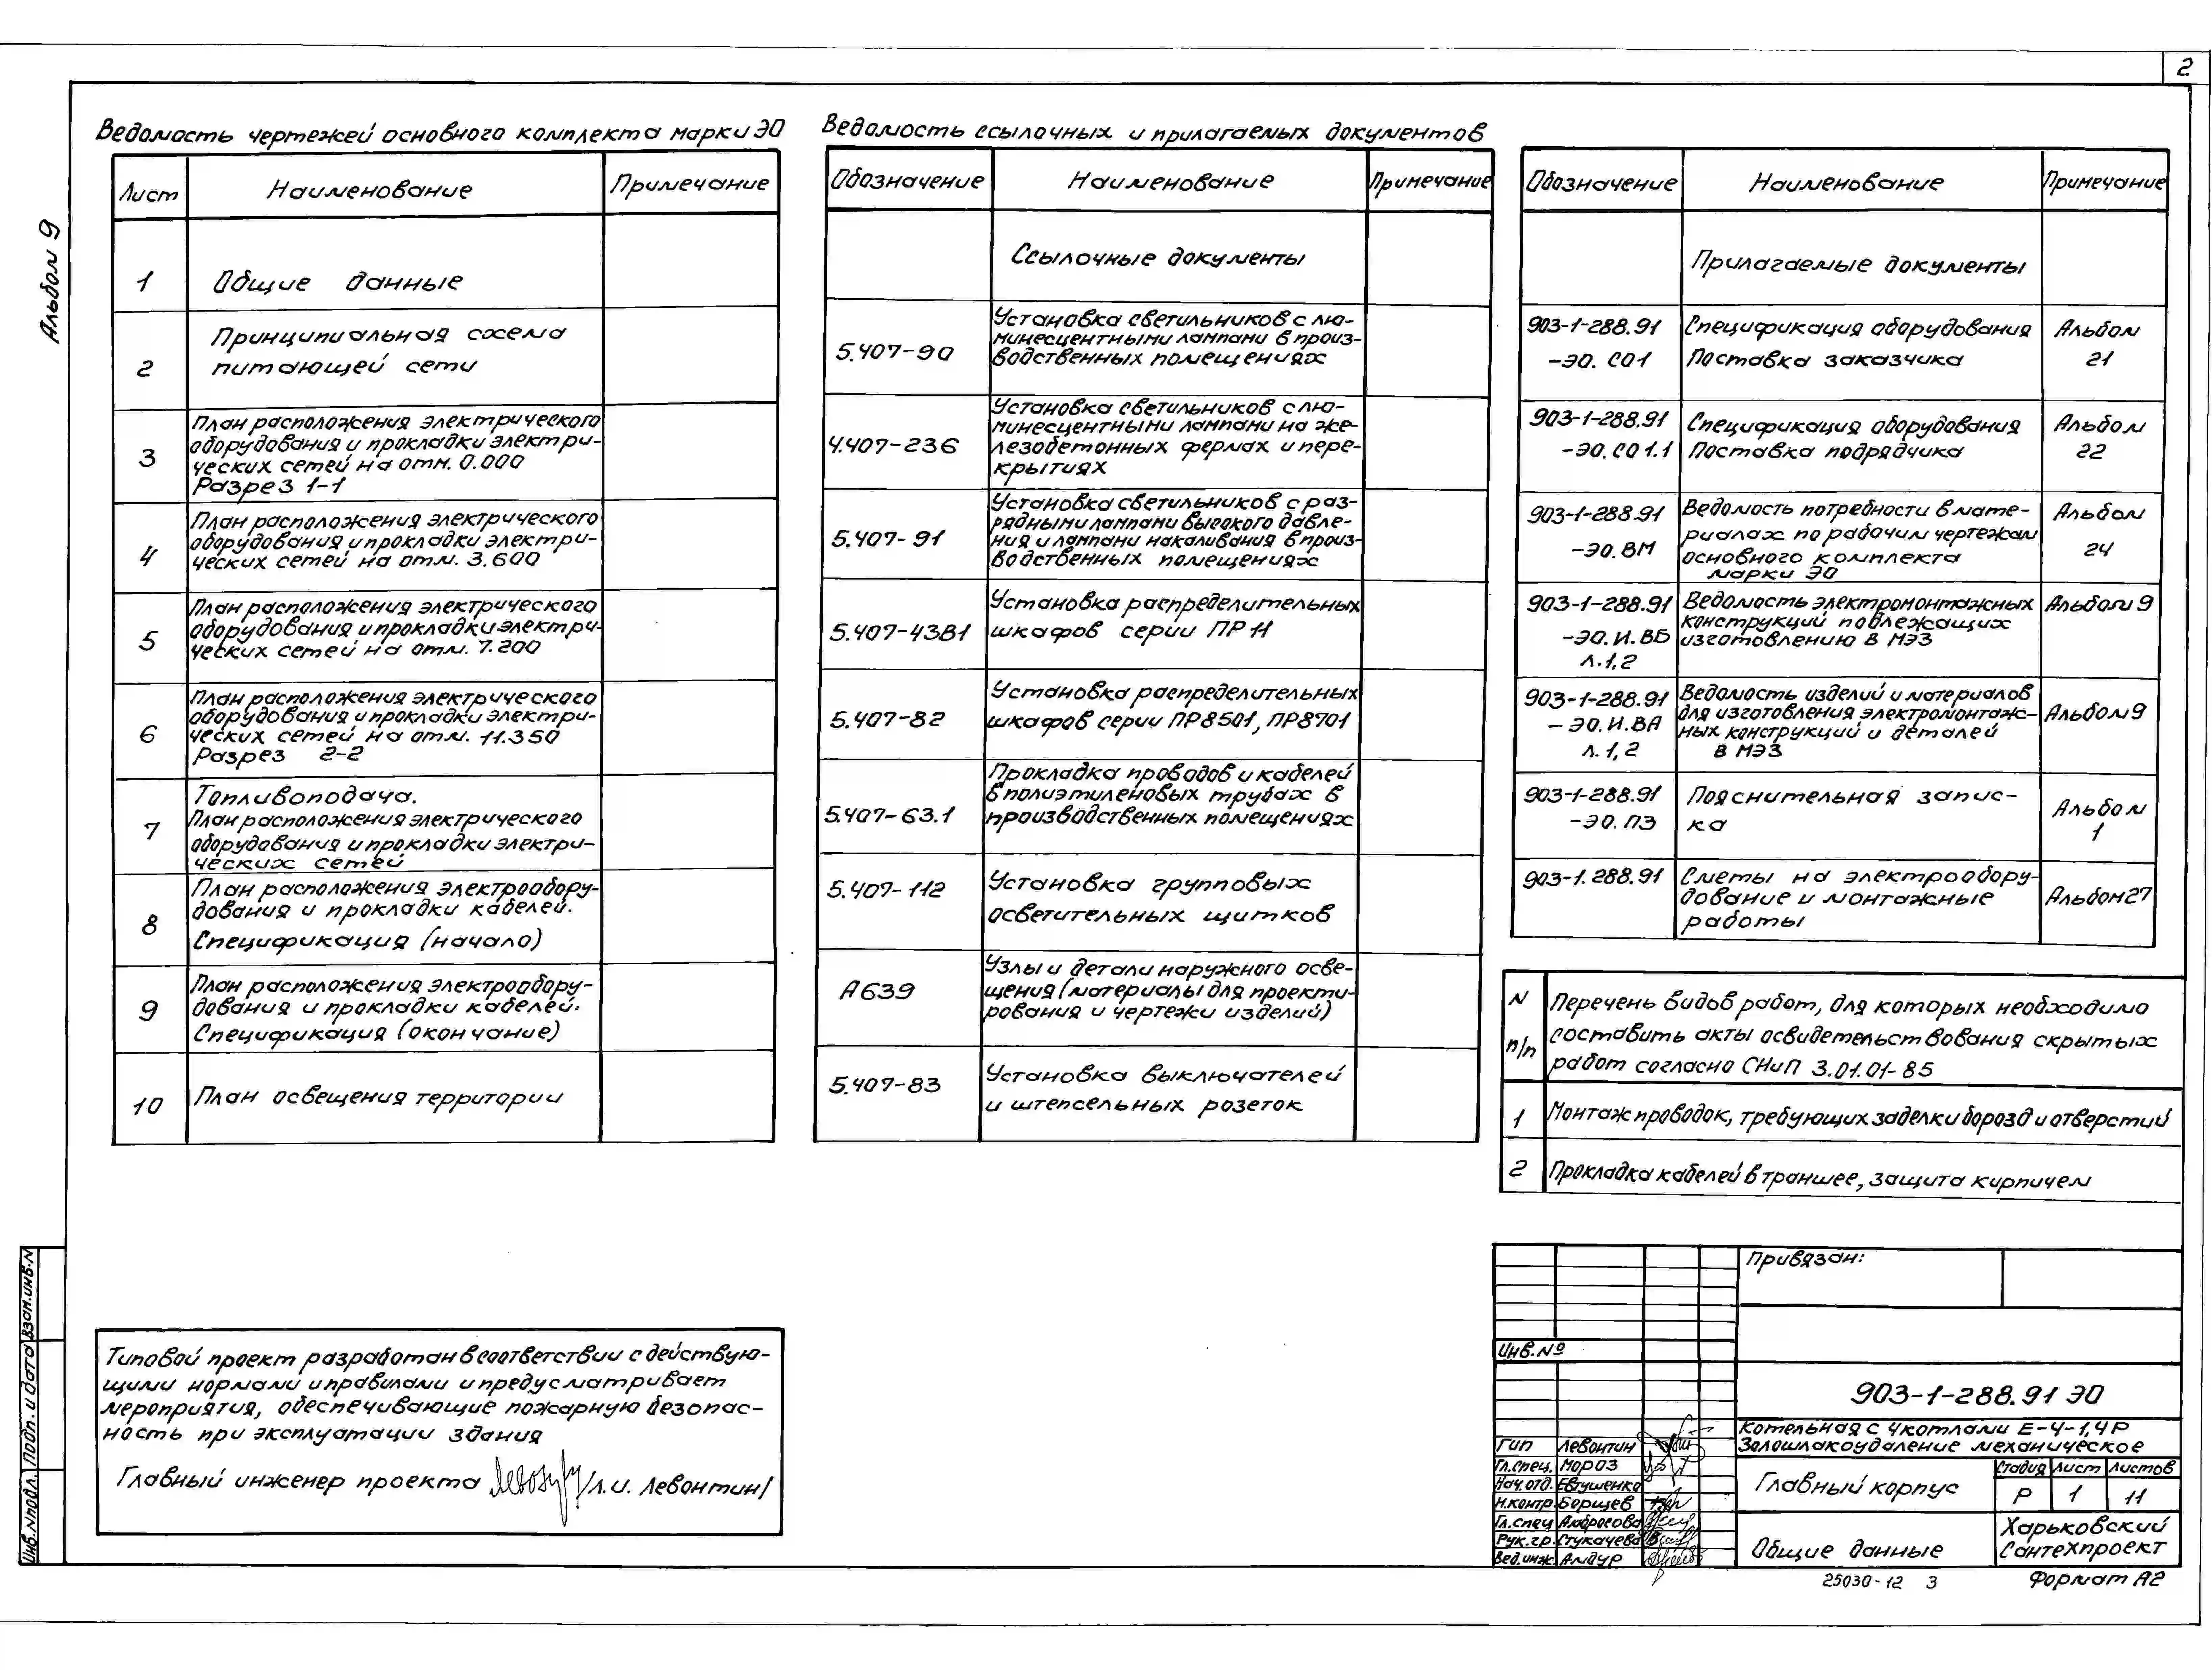 2
Альбом 9
Ведомость чертежей основного комплекта марки ЭО
Лист
Наименование
Примечание
1
Общие данные
2
Принципиальная схема
питающей сети
3
План расположения электрического
оборудования и прокладки электри-
ческих сетей на отм. 0.000
Разрез 1-1
4
План расположения электрического
оборудования и прокладки электри-
ческих сетей на отм. 3.600
5
План расположения электрического
оборудования и прокладки электри-
ческих сетей на отм. 7.200
6
План расположения электрического
оборудования и прокладки электри-
ческих сетей на отм. 11.350
Разрез 2-2
7
Топливоподача.
План расположения электрического
оборудования и прокладки электри-
ческих сетей
8
План расположения электрообору-
дования и прокладки кабелей.
Спецификация (начало)
9
План расположения электрообору-
дования и прокладки кабелей.
Спецификация (окончание)
10
План освещения территории
Ведомость ссылочных и прилагаемых документов
Обозначение
Наименование
Примечание
Ссылочные документы
5.407-90
Установка светильников с лю-
минесцентными лампами в произ-
водственных помещениях
4.407-236
Установка светильников с лю-
минесцентными лампами на же-
лезобетонных фермах и пере-
крытиях
5.407-91
Установка светильников с раз-
рядными лампами высокого давле-
ния и лампами накаливания в произ-
водственных помещениях
5.407-43В1
Установка распределительных
шкафов серии ПР 11
5.407-82
Установка распределительных
шкафов серии ПР8501, ПР8701
5.407-63.1
Прокладка проводов и кабелей
в полиэтиленовых трубах в
производственных помещениях
5.407-112
Установка групповых
осветительных щитков
А639
Узлы и детали наружного осве-
щения (материалы для проекти-
рования и чертежи изделий)
5.407-83
Установка выключателей
и штепсельных розеток
Обозначение
Наименование
Примечание
Прилагаемые документы
903-1-288.91
-ЭО. СО1
Спецификация оборудования
Поставка заказчика
Альбом
21
903-1-288.91
-ЭО.СО1.1
Спецификация оборудования
Поставка подрядчика
Альбом
22
903-1-288.91
-ЭО.ВМ
Ведомость потребности в мате-
риалах по рабочим чертежам
основного комплекта
марки ЭО
Альбом
24
903-1-288.91
-ЭО.И.ВБ
л.1,2
Ведомость электромонтажных
конструкций подлежащих
изготовлению в МЭЗ
Альбом 9
903-1-288.91
-ЭО.И.ВА
л.1,2
Ведомость изделий и материалов
для изготовления электромонтаж-
ных конструкций и деталей
в МЭЗ
Альбом 9
903-1-288.91
-ЭО.ПЗ
Пояснительная запис-
ка
Альбом
1
903-1.288.91
Сметы на электрообору-
дование и монтажные
работы
Альбом 27
N
п/п
Перечень видов работ, для которых необходимо
составить акты освидетельствования скрытых
работ согласно СНиП 3.01.01-85
1
Монтаж проводок, требующих заделки борозд и отверстий
2
Прокладка кабелей в траншее, защита кирпичем
Типовой проект разработан в соответствии с действую-
щими нормами и правилами и предусматривает
мероприятия, обеспечивающие пожарную безопас-
ность при эксплуатации здания
Главный инженер проекта /Л.И. Левонтин/
Взам.инв.N
Подп. и дата
Инв.Nподл.
Привязан:
Инв.№
903-1-288.91 ЭО
Котельная с 4 котлами Е-4-1,4Р
Золошлакоудаление механическое
ГИП Левонтин
Гл.спец. Мороз
Нач.отд. Евтушенко
Н.контр. Борщев
Гл.спец Амбросова
Рук.гр. Стукачева
Вед.инж. Амдур
Главный корпус
Стадия Лист Листов
Р 1 11
Общие данные
Харьковский
Сантехпроект
25030-12 3
Формат А2